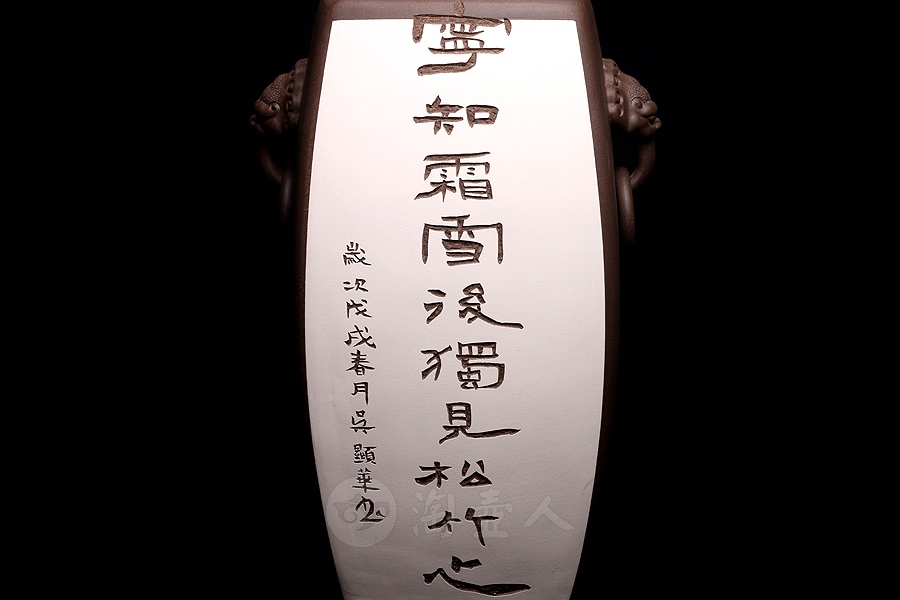 寧知霜雪後獨見松竹心
歲次戊戌春月吳顯華書
淘壺人